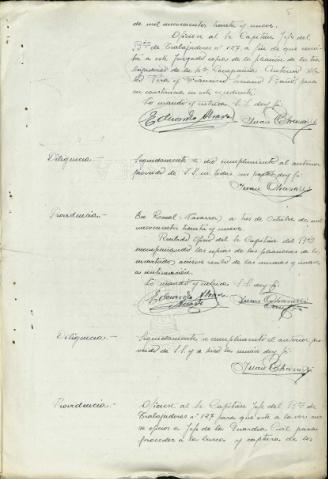 de mil novecientos treinta y nueve.
Ofíciese al Sr Capitán Jefe del
B.ón de Trabajadores nº 127, a fin de que remi-
ta a este Juzgado copia de la filiación de los tra-
bajadores de la 4ª Compañía Antonio
y Francisco para
su constancia en este expediente.
Lo mandó y rubrica S.S. doy fe.
Eduardo Juan
Diligencia.- Seguidamente se dió cumplimiento al anterior
proveido de S.S. en todas sus partes, doy fe.
Juan
Providencia.- En Roncal (Navarra) a tres de Octubre de mil
novecientos treinta y nueve.
Recibido oficio del Sr Capitán del B.ón
acompañando las copias de las filiaciones de los
encartados, acúsese recibo de las mismas y únase
a continuación.
Lo mandó y rubrica S.S. doy fe.
Eduardo Juan
Diligencia.- Seguidamente se cumplimentó el anterior pro-
veido de S.S. y se unió las mismas doy fe.
Juan
Providencia.- Ofíciese al Sr Capitán Jefe del B.ón de
Trabajadores nº 127 para que este a la vez
se oficie a Jefe de la Guardia Civil para
proceder a la busca y captura de los